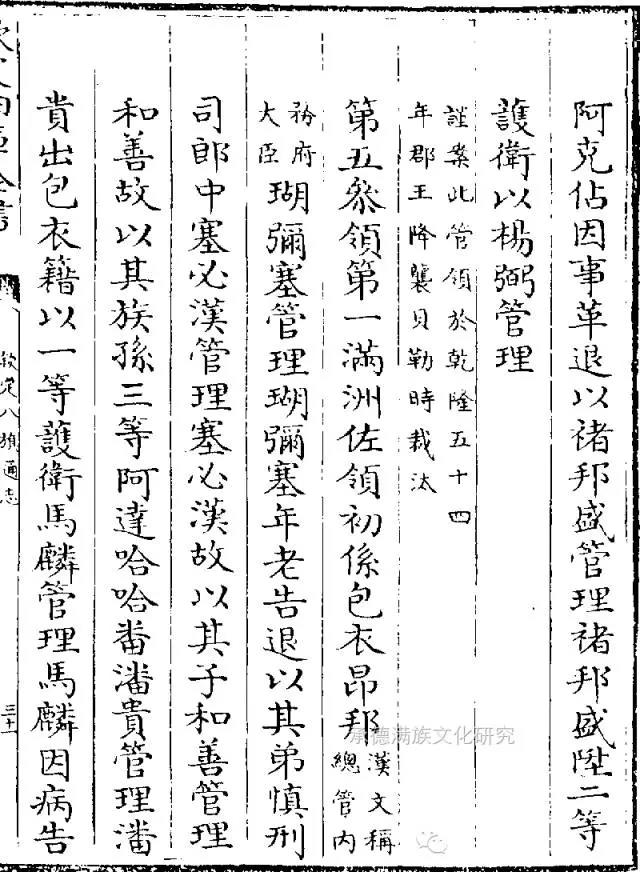 阿克佔因事革退以禇邦盛管理禇邦盛陞二等
護衛以楊弼管理
謹案此管領於乾隆五十四
年郡王降襲貝勒時裁汰
第五叅領第一滿洲佐領初係包衣昂邦漢文稱
總管内
務府
大臣瑚彌塞管理瑚彌塞年老告退以其弟慎刑
司郎中塞必漢管理塞必漢故以其子和善管理
和善故以其族孫三等阿達哈哈番潘貴管理潘
貴出包衣籍以一等護衛馬麟管理馬麟因病告
欽定八旗通志
三十
承德满族文化研究